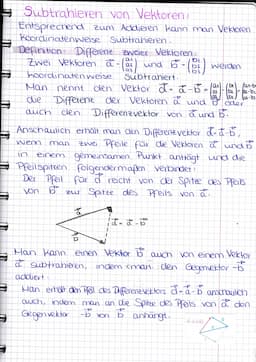 Subtrahieren von Vektoren:
Entsprechend zum Addieren kann man Vektoren
koordinatenweise Subtrahieren.
Definition: Differenz zweier Vektoren:
Zwei Vektoren a = (a1 a2 a3) und b = (b1 b2 b3) werden
koordinatenweise Subtrahiert.
Man nennt den Vektor d = a - b = (a1 a2 a3) - (b1 b2 b3) =
die Differenz der Vektoren a und b oder
auch den Differenzvektor von a und b.
Anschaulich erhält man den Differenzvektor d = a - b,
wenn man zwei Pfeile für die Vektoren a und b
in einem gemeinsamen Punkt anträgt und die
Pfeilspitzen folgendermaßen verbindet:
Der Pfeil für d reicht von der Spitze des Pfeils
von b zur Spitze des Pfeils von a.
a
d = a - b
b
Man kann einen Vektor b auch von einem Vektor
a subtrahieren, indem man den Gegenvektor -b
addiert.
Man erhält den Pfeil des Differenzvektors d = a - b anschaulich
auch, indem man an die Spitze des Pfeils von a den
Gegenvektor -b von b anhängt.